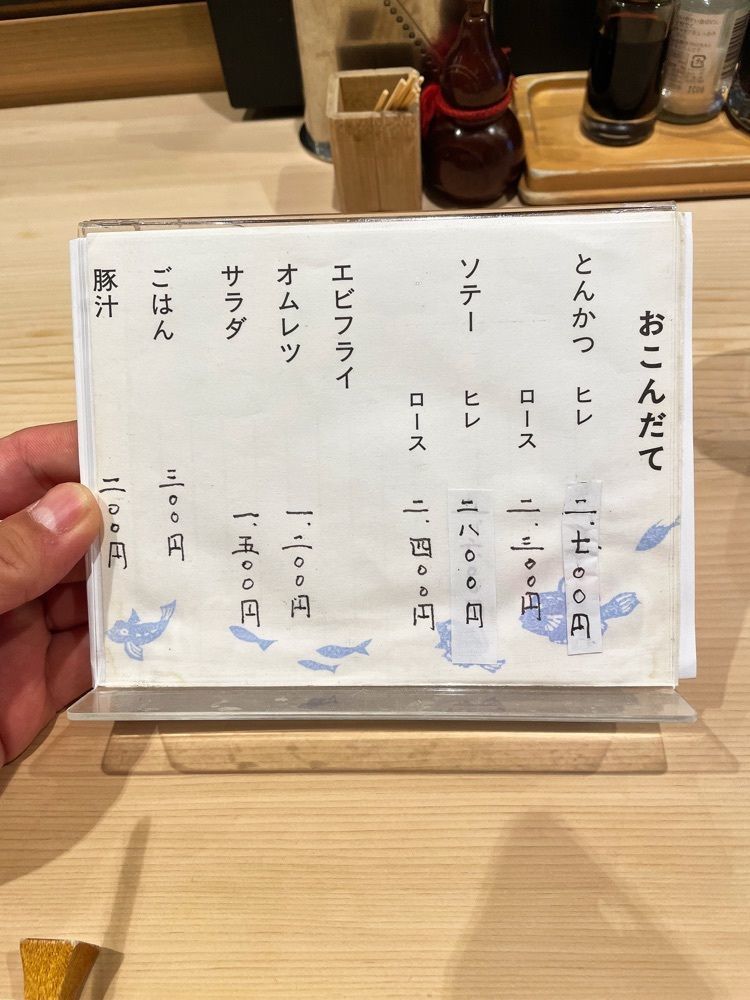 おこんだて
とんかつ ヒレ 二.七〇〇円
ロース 二.三〇〇円
ソテー ヒレ 二八〇〇円
ロース 二.四〇〇円
エビフライ
オムレツ 一.二〇〇円
サラダ 一.五〇〇円
ごはん 三〇〇円
豚汁 二〇〇円